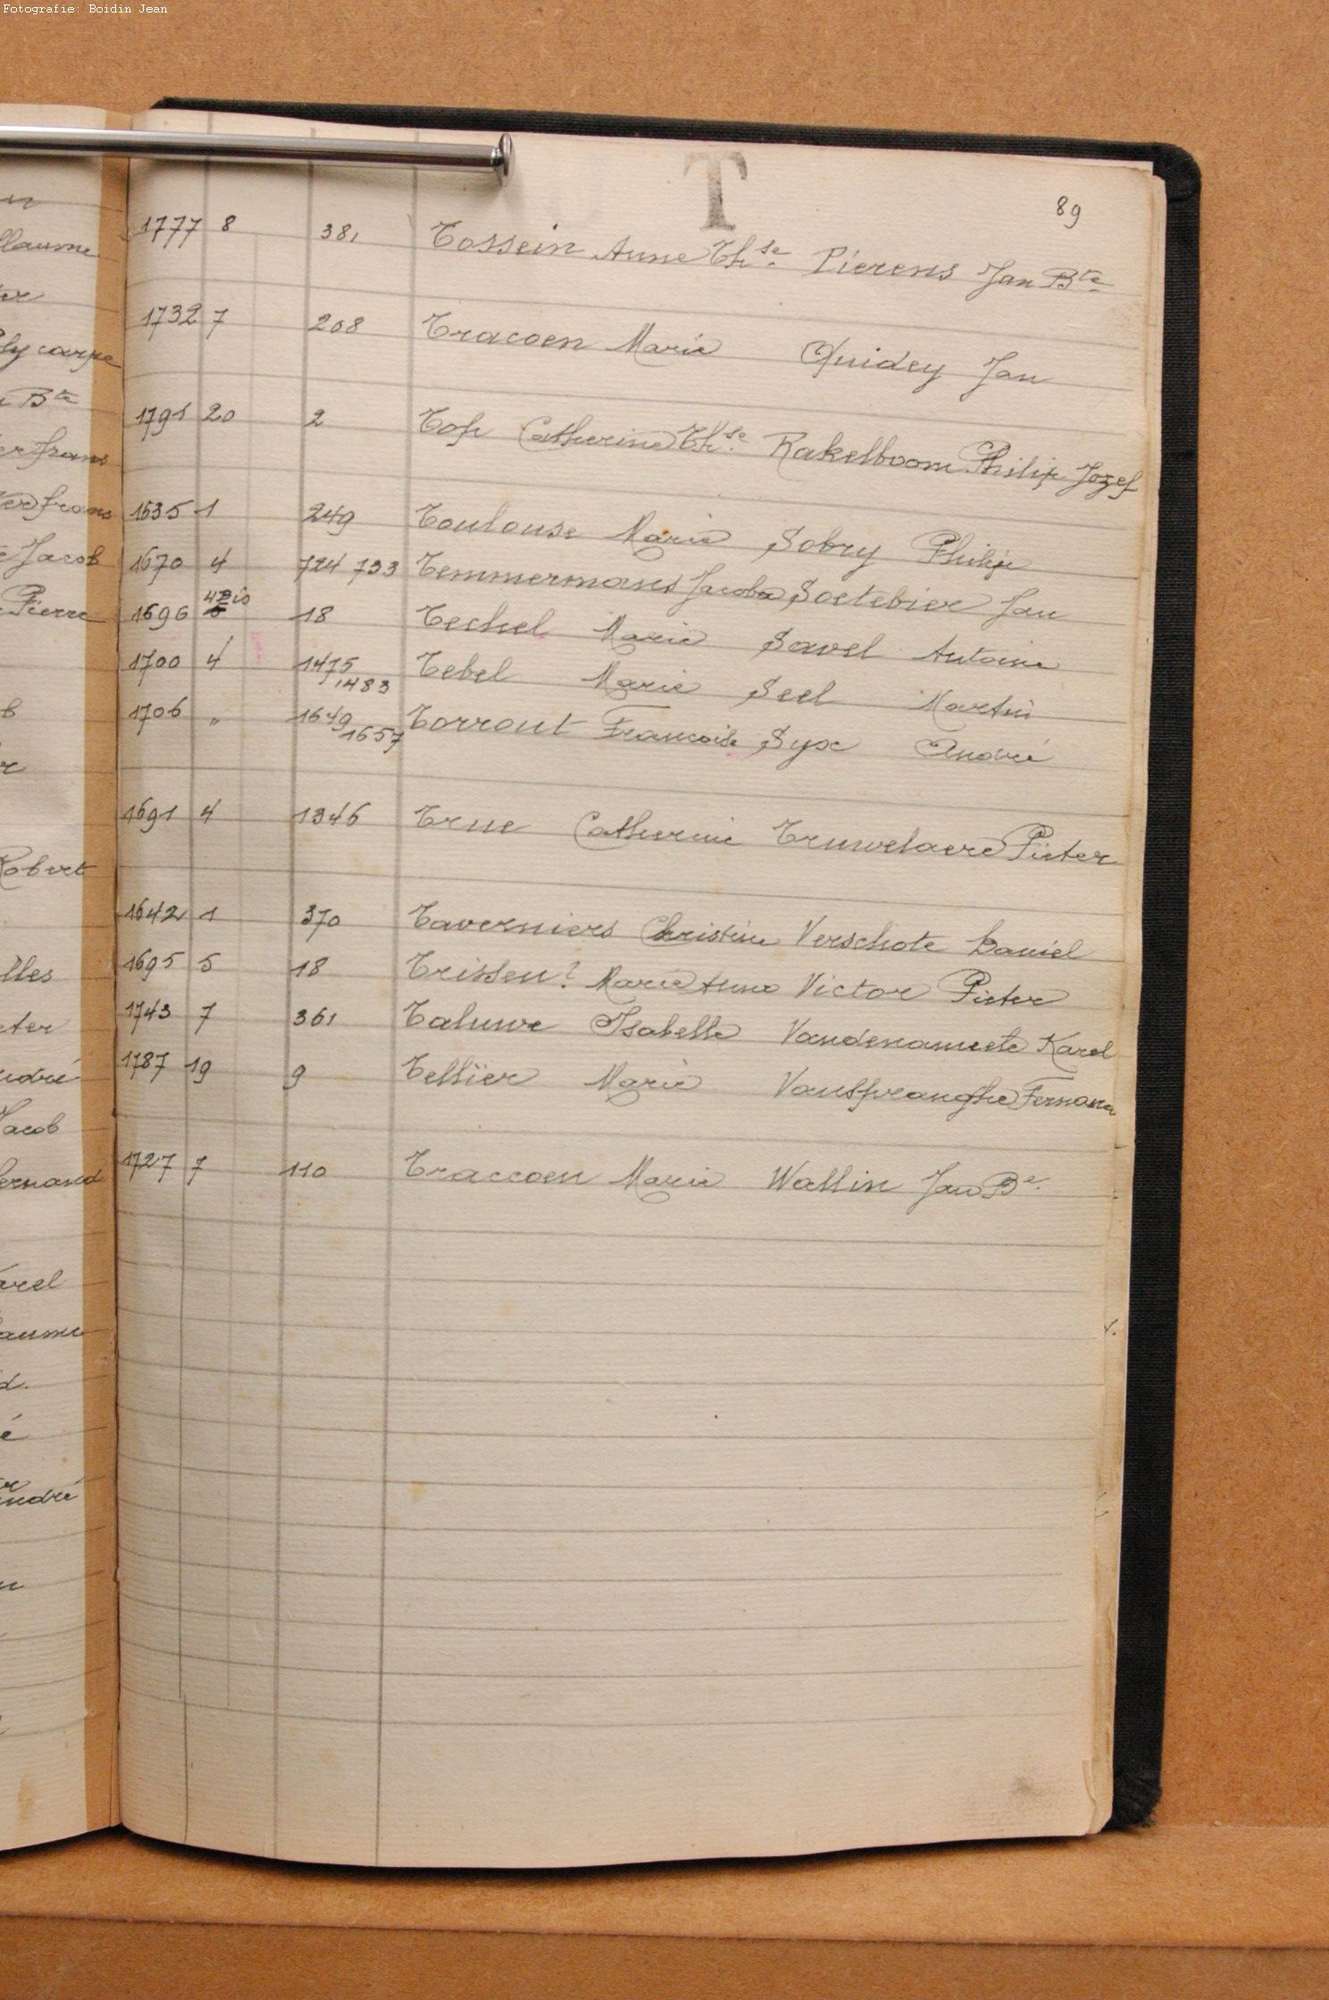 Fotografie: Boidin Jean
T
89
1777 8 381 Tossein Anne Thse. Pierens Jan Bte
1732 7 208 Tracoen Marie Quidey Jan
1791 20 2 Top Catherine Thse. Rakelboom Philip Jozef
1635 1 249 Toulouse Marie Sobry Philip
1670 4 724 733 Temmermans Jacoba Soetebier Jan
1696 4Bis 18 Techel Marie Savel Antoine
1700 4 1475 1483 Tebel Marie Seel Martin
1706 " 1649 1657 Torrout Francoise Syx André
1691 4 1346 True Catherine Truwelaere Pieter
1642 1 370 Taverniers Christine Verschote Daniel
1695 5 18 Trissen? Marie Anne Victor Pieter
1743 7 361 Taluwe Isabelle Vandenameele Karel
1787 19 9 Tellier Marie Vanspranghe
1727 7 110 Traccoen Marie Wallin Jan Be.
llaume
ly carpe
Bte
frans
frans
Jacob
Pierre
Robert
lles
Jacob